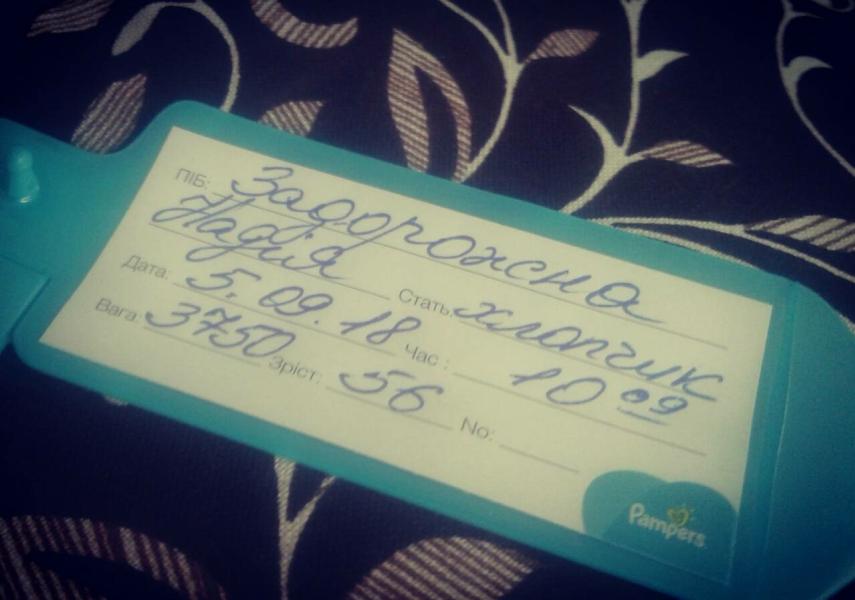 ПІБ: Задорожна
Надія
Стать: хлопчик
Дата: 5.09.18 Час: 10 09
Вага: 3750 Зріст: 56 No:
Pampers